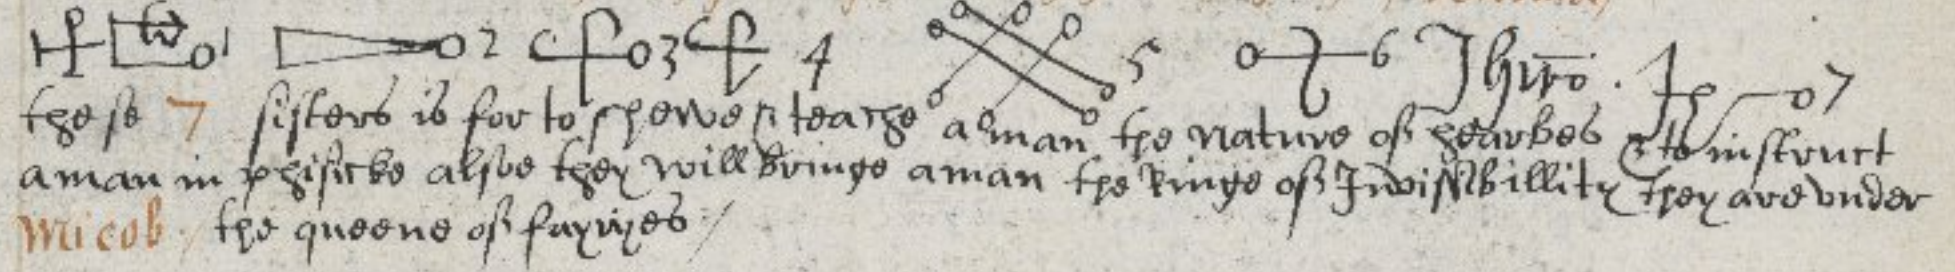 1 2 3 4 5 6 7
these 7 sisters is for to shewe & teache a man the nature of hearbes & to instruct
a man in phisicke alsoe they will bringe a man the Ringe of Invissibillity they are vnder
Micob / the queene of fayries /